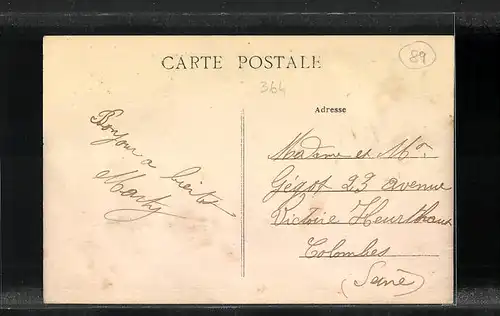 CARTE POSTALE
89
364
Adresse
Bonjour a bientot
Madame et Mr
Gégot 23 avenue
Victoire Heurtheaux
Colombes
(Seine)